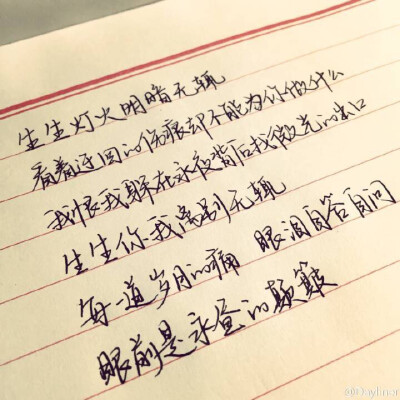 生生灯火明暗无辄
看着迂回的伤痕却不能为你做什么
我恨我躲在永夜背后找微光的出口
生生你我离别无辄
每一道岁月的痛 眼泪自答自问
眼前是永昼的颠簸